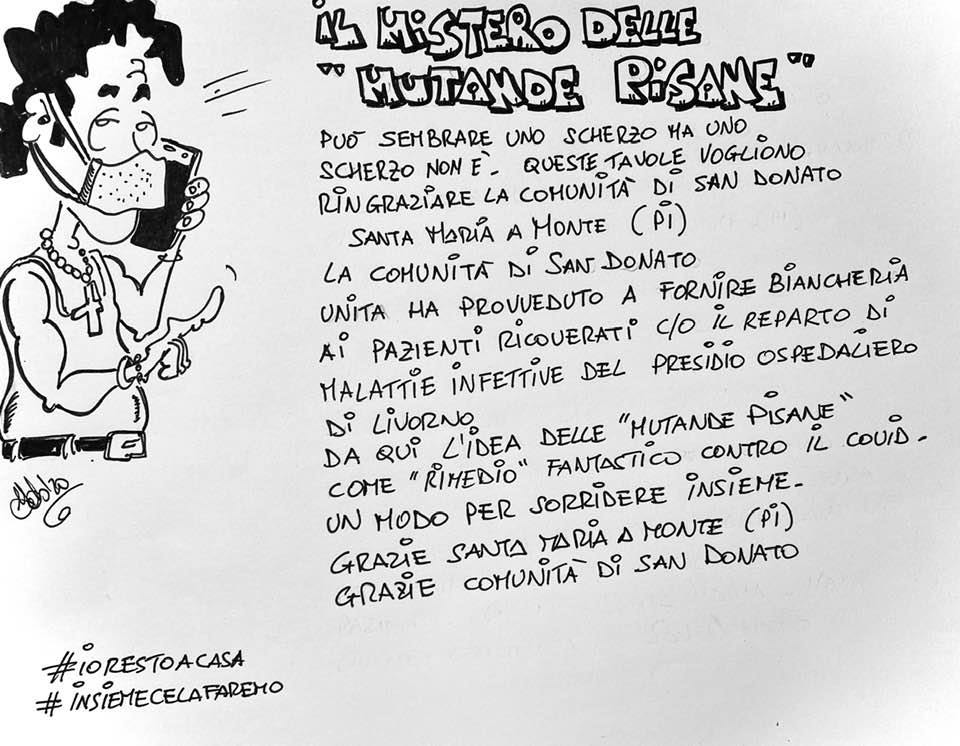 iL MiSTERO DELLE
"MUTANDE PiSANE"
PUÒ SEMBRARE UNO SCHERZO MA UNO
SCHERZO NON È. QUESTE TAVOLE VOGLIONO
RINGRAZIARE LA COMUNITÀ Di SAN DONATO
SANTA MARiA A MONTE (Pi)
LA COMUNITÀ Di SAN DONATO
UNITA HA PROVVEDUTO A FORNIRE BIANCHERiA
Ai PAZIENTI RICOVERATI C/O iL REPARTO Di
MALATTIE INFETTIVE DEL PRESIDIO OSPEDALIERO
Di LIVORNO
DA QUI L'IDEA DELLE "MUTANDE PISANE"
COME "RIMEDIO" FANTASTICO CONTRO IL COVID.
UN MODO PER SORRIDERE iNSiEME.
GRAZIE SANTA MARiA A MONTE (Pi)
GRAZIE COMUNITÀ Di SAN DONATO
#iORESTOACASA
#iNSIEMECELAFAREMO